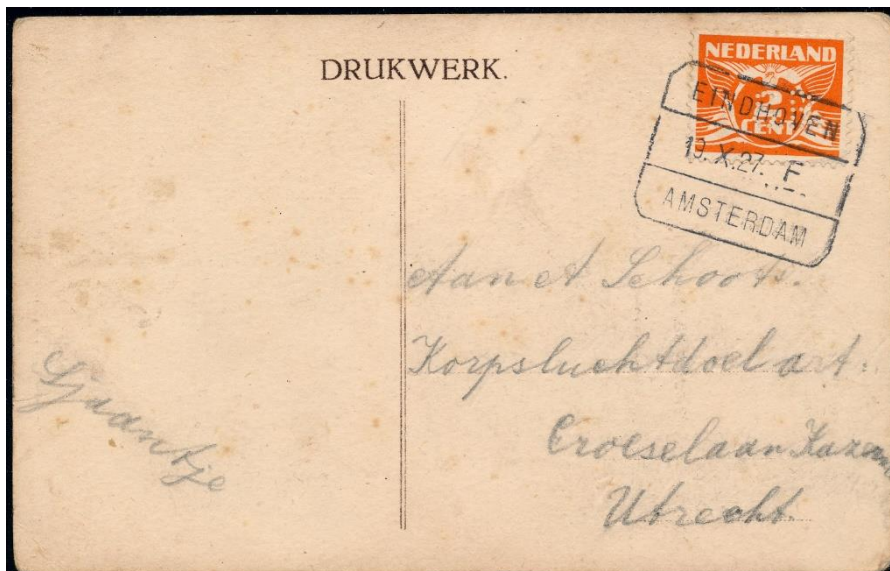 DRUKWERK.
NEDERLAND
2
CENT
EINDHOVEN
19.X.27. F
AMSTERDAM
Aan A Schoots.
Korpsluchtdoel art.
Croeselaan Kazerne
Utrecht.
Sjaantje